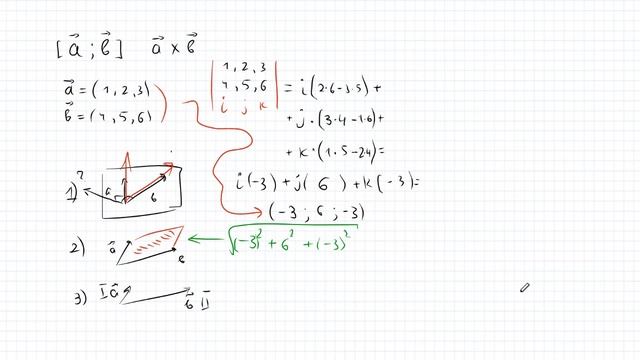 [a⃗ ; b⃗] a⃗ × b⃗
a⃗ = (1, 2, 3)
b⃗ = (4, 5, 6)
1, 2, 3
4, 5, 6
i j k
= i(2·6-3·5) +
+ j·(3·4-1·6)+
+ k·(1·5-24)=
i(-3) + j( 6 ) + k(-3)=
(-3 ; 6 ; -3)
1) ? a b
2) a⃗ b
√(-3)² + 6² + (-3)²
3) I a⃗ b⃗ II